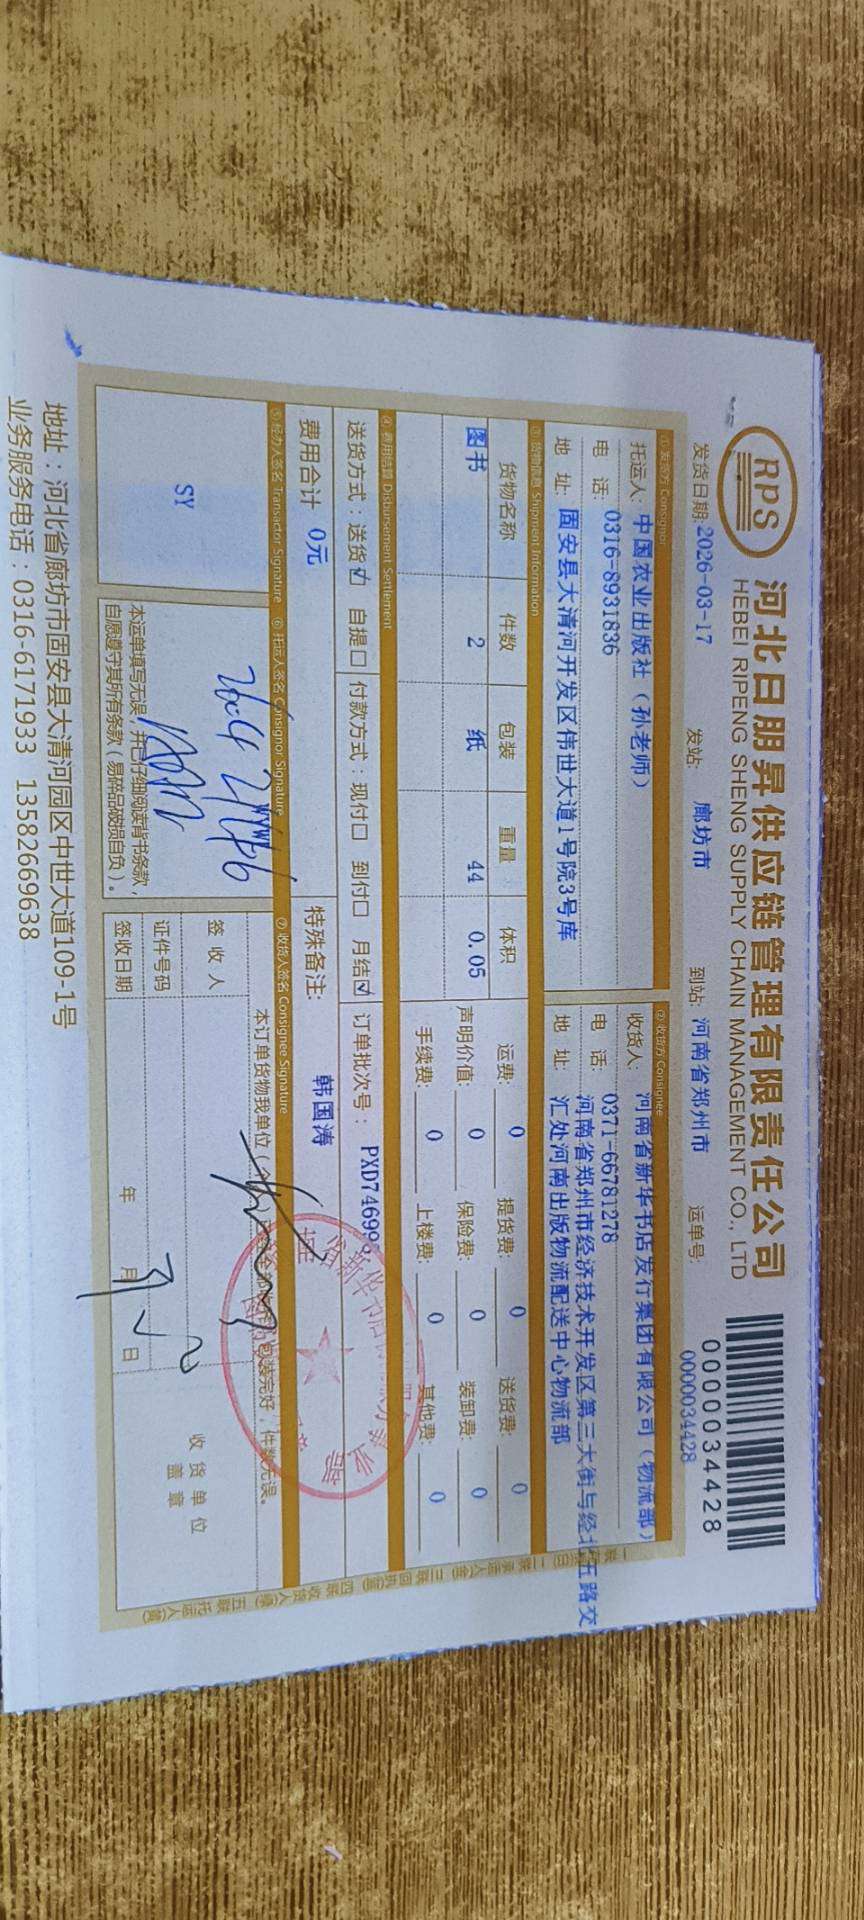 RPS
河北日朋昇供应链管理有限责任公司
HEBEI RIPENG SHENG SUPPLY CHAIN MANAGEMENT CO., LTD
0000034428
发货日期:2026-03-17 发站: 廊坊市 到站: 河南省郑州市 运单号: 0000034428
①发货方 Consignor ②收货方 Consignee
托运人:中国农业出版社（孙老师） 收货人: 河南省新华书店发行集团有限公司（物流部）
电 话: 0316-8931836 电 话: 0371-66781278
地 址: 固安县大清河开发区伟世大道1号院3号库 地 址: 河南省郑州市经济技术开发区第三大街与经北五路交
汇处河南出版物流配送中心物流部
③货物信息 Shipment Information
货物名称 件数 包装 重量 体积 运费: 0 提货费: 0 送货费: 0
图书 2 纸 44 0.05 声明价值: 0 保险费: 0 装卸费: 0
手续费: 0 上楼费: 0 其他费: 0
④费用结算 Disbursement Settlement
送货方式：送货☑ 自提□ 付款方式：现付□ 到付□ 月结☑ 订单批次号： PXD74699
费用合计 0元 特殊备注: 韩国涛
⑤经办人签名 Transactor Signature ⑥托运人签名 Consignor Signature ⑦收货人签名 Consignee Signature
SY
本订单货物我单位
包装完好，件数无误。
签收人
证件号码
签收日期 年 月 日
收货单位
盖章
本运单填写无误，并已仔细阅读背书条款，
自愿遵守其所有条款（易碎品破损自负）。
地址：河北省廊坊市固安县大清河园区中世大道109-1号
业务服务电话：0316-6171933 13582669638